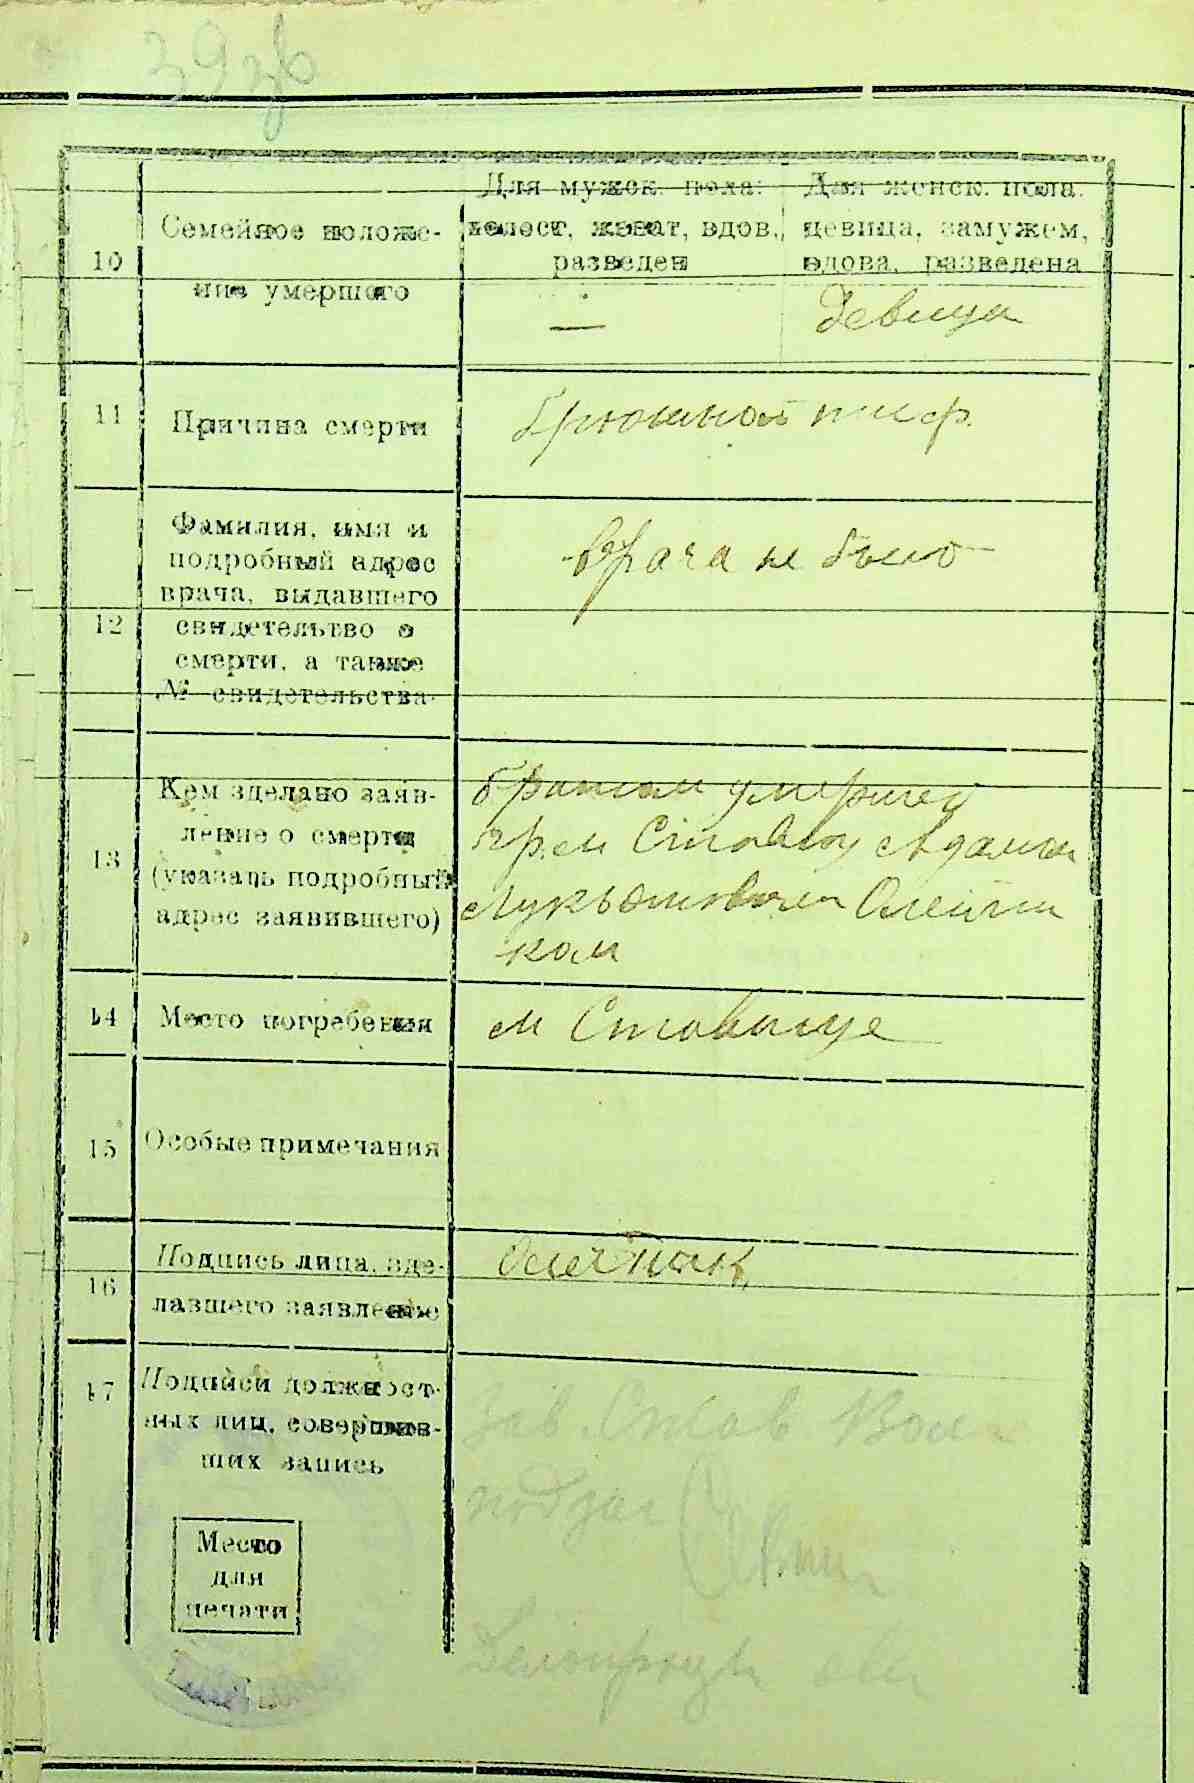 39 зв
10
Семейное положе-
ние умершого
Для мужск. пола:
холост, женат, вдов,
разведен
—
Для женск. пола
девица, замужем,
вдова, разведена
девица
11
Причина смерти
брюшной тиф.
12
Фамилия, имя и
подробный адрес
врача, выдавшего
свидетельство о
смерти, а также
№ свидетельства
врача не было
13
Кем зделано заяв-
ление о смерти
(указать подробный
адрес заявившего)
братом умершей
гр. м Ставищ Адамом
Лукъяновичем Олейни
ком
14
Место погребения
м Ставище
15
Особые примечания
16
Подпись лица, зде-
лавшего заявление
Олейник
17
Подписи должност-
ных лиц, совершив-
ших запись
Зав. Став
подзаг
Делопроизв
Место
для
печати